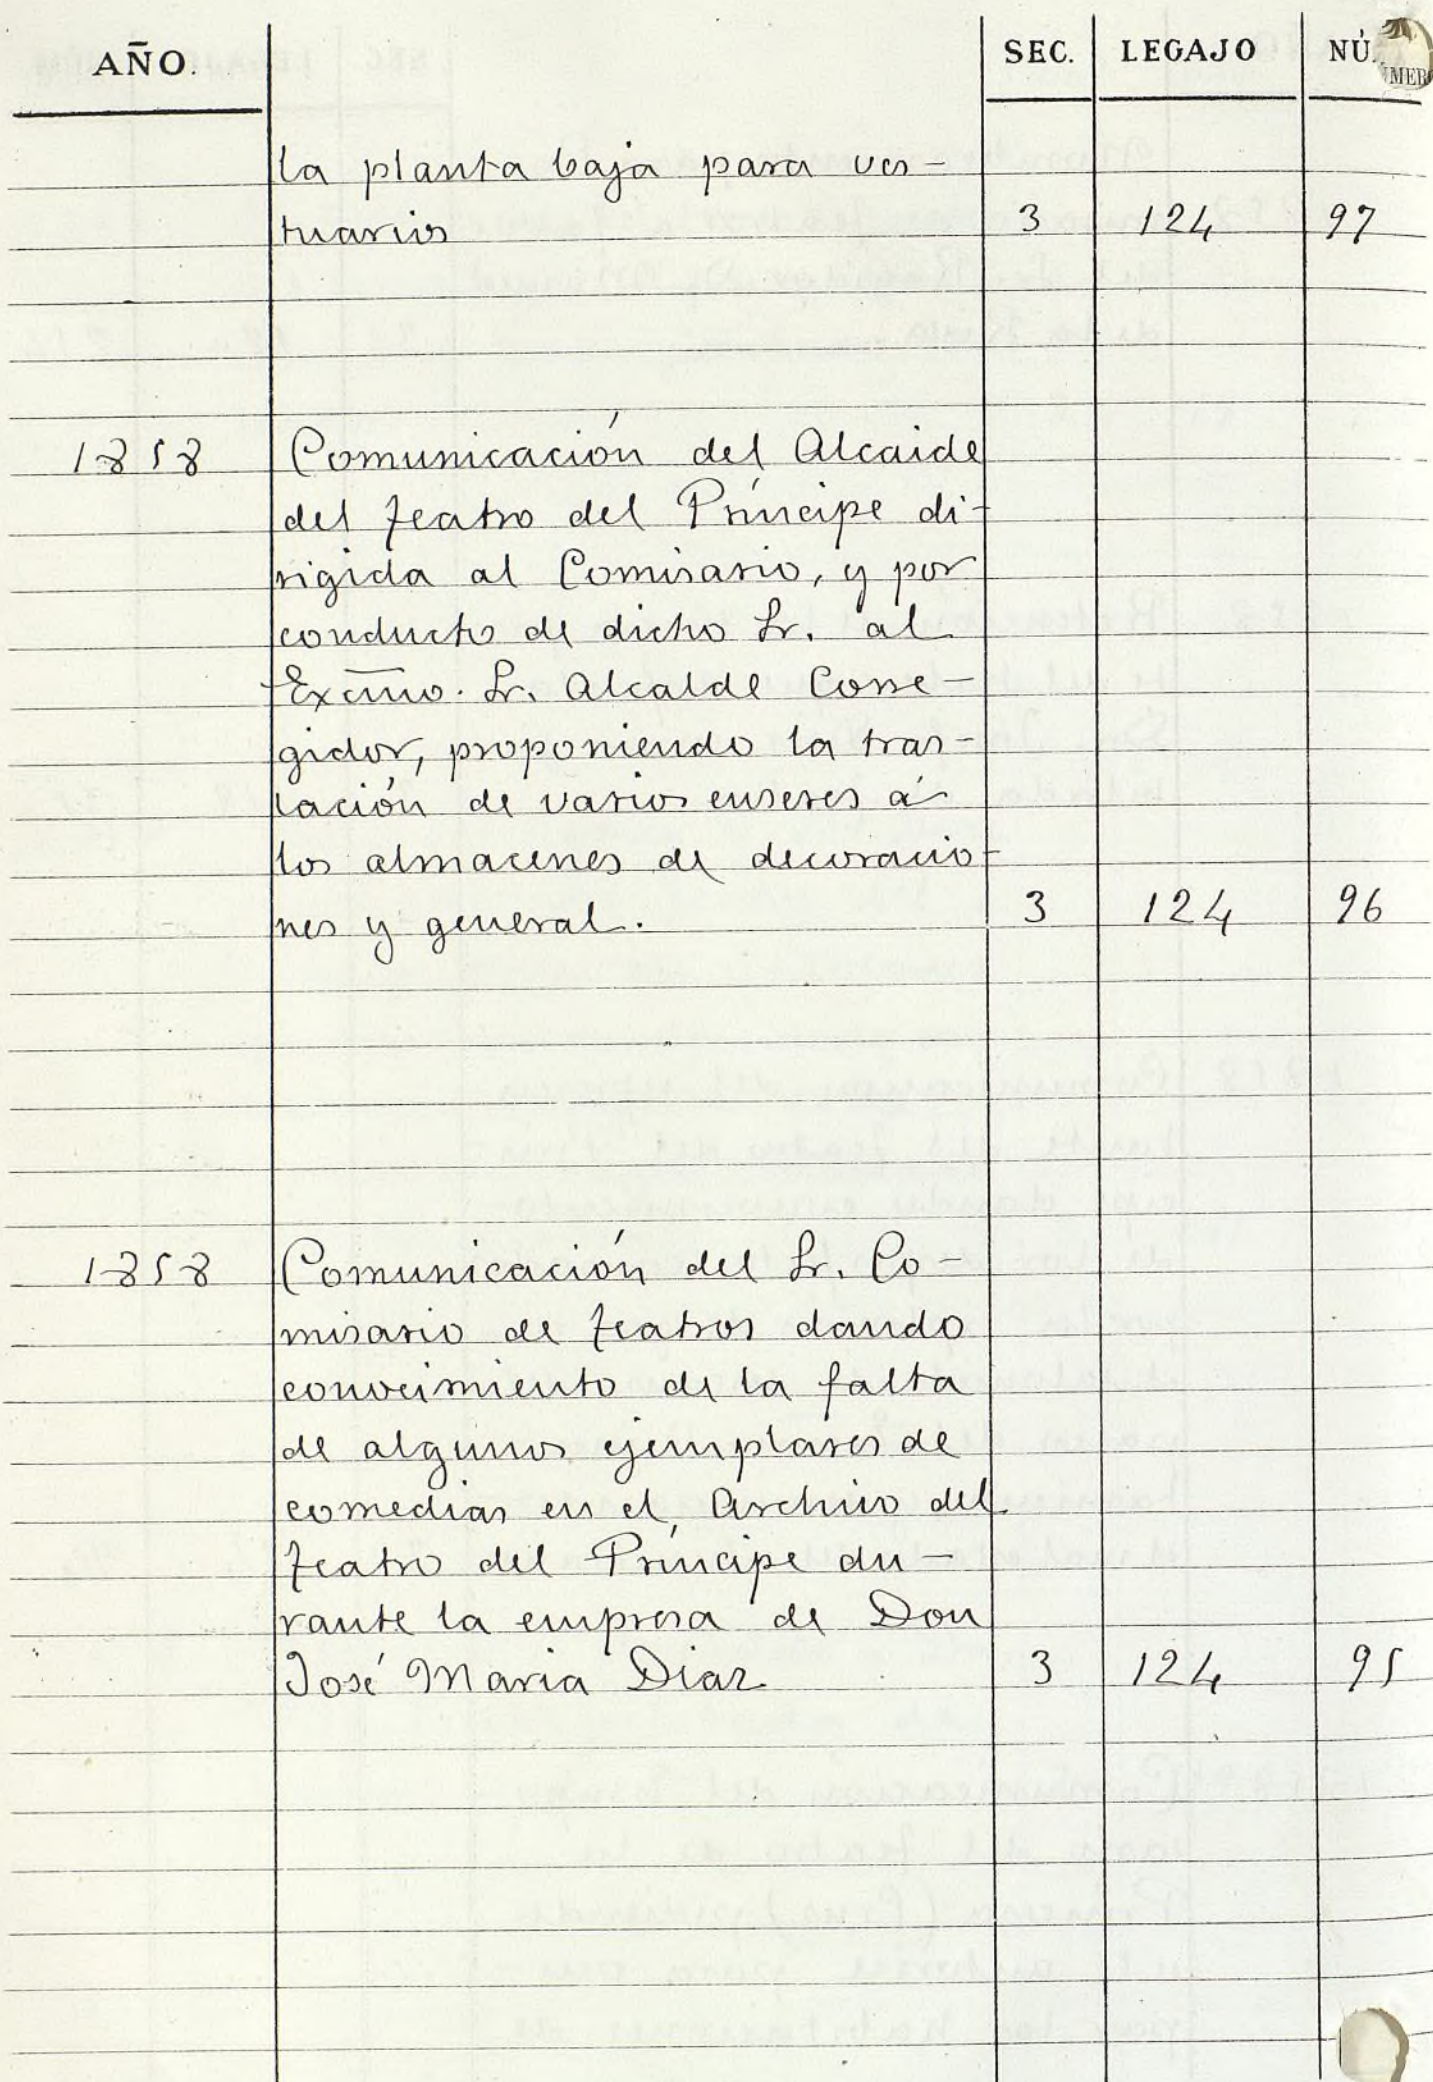 AÑO. SEC. LEGAJO NÚMERO
la planta baja para ves-
tuarios 3 124 97
1858 Comunicación del Alcaide
del Teatro del Príncipe di-
rigida al Comisario, y por
conducto de dicho Sr. al
Excmo. Sr. Alcalde Corre-
gidor, proponiendo la tras-
lación de varios enseres á
los almacenes de decoracio-
nes y general. 3 124 96
1858 Comunicación del Sr. Co-
misario de Teatros dando
conocimiento de la falta
de algunos ejemplares de
comedias en el Archivo del
Teatro del Príncipe du-
rante la empresa de Don
José Maria Diaz 3 124 95